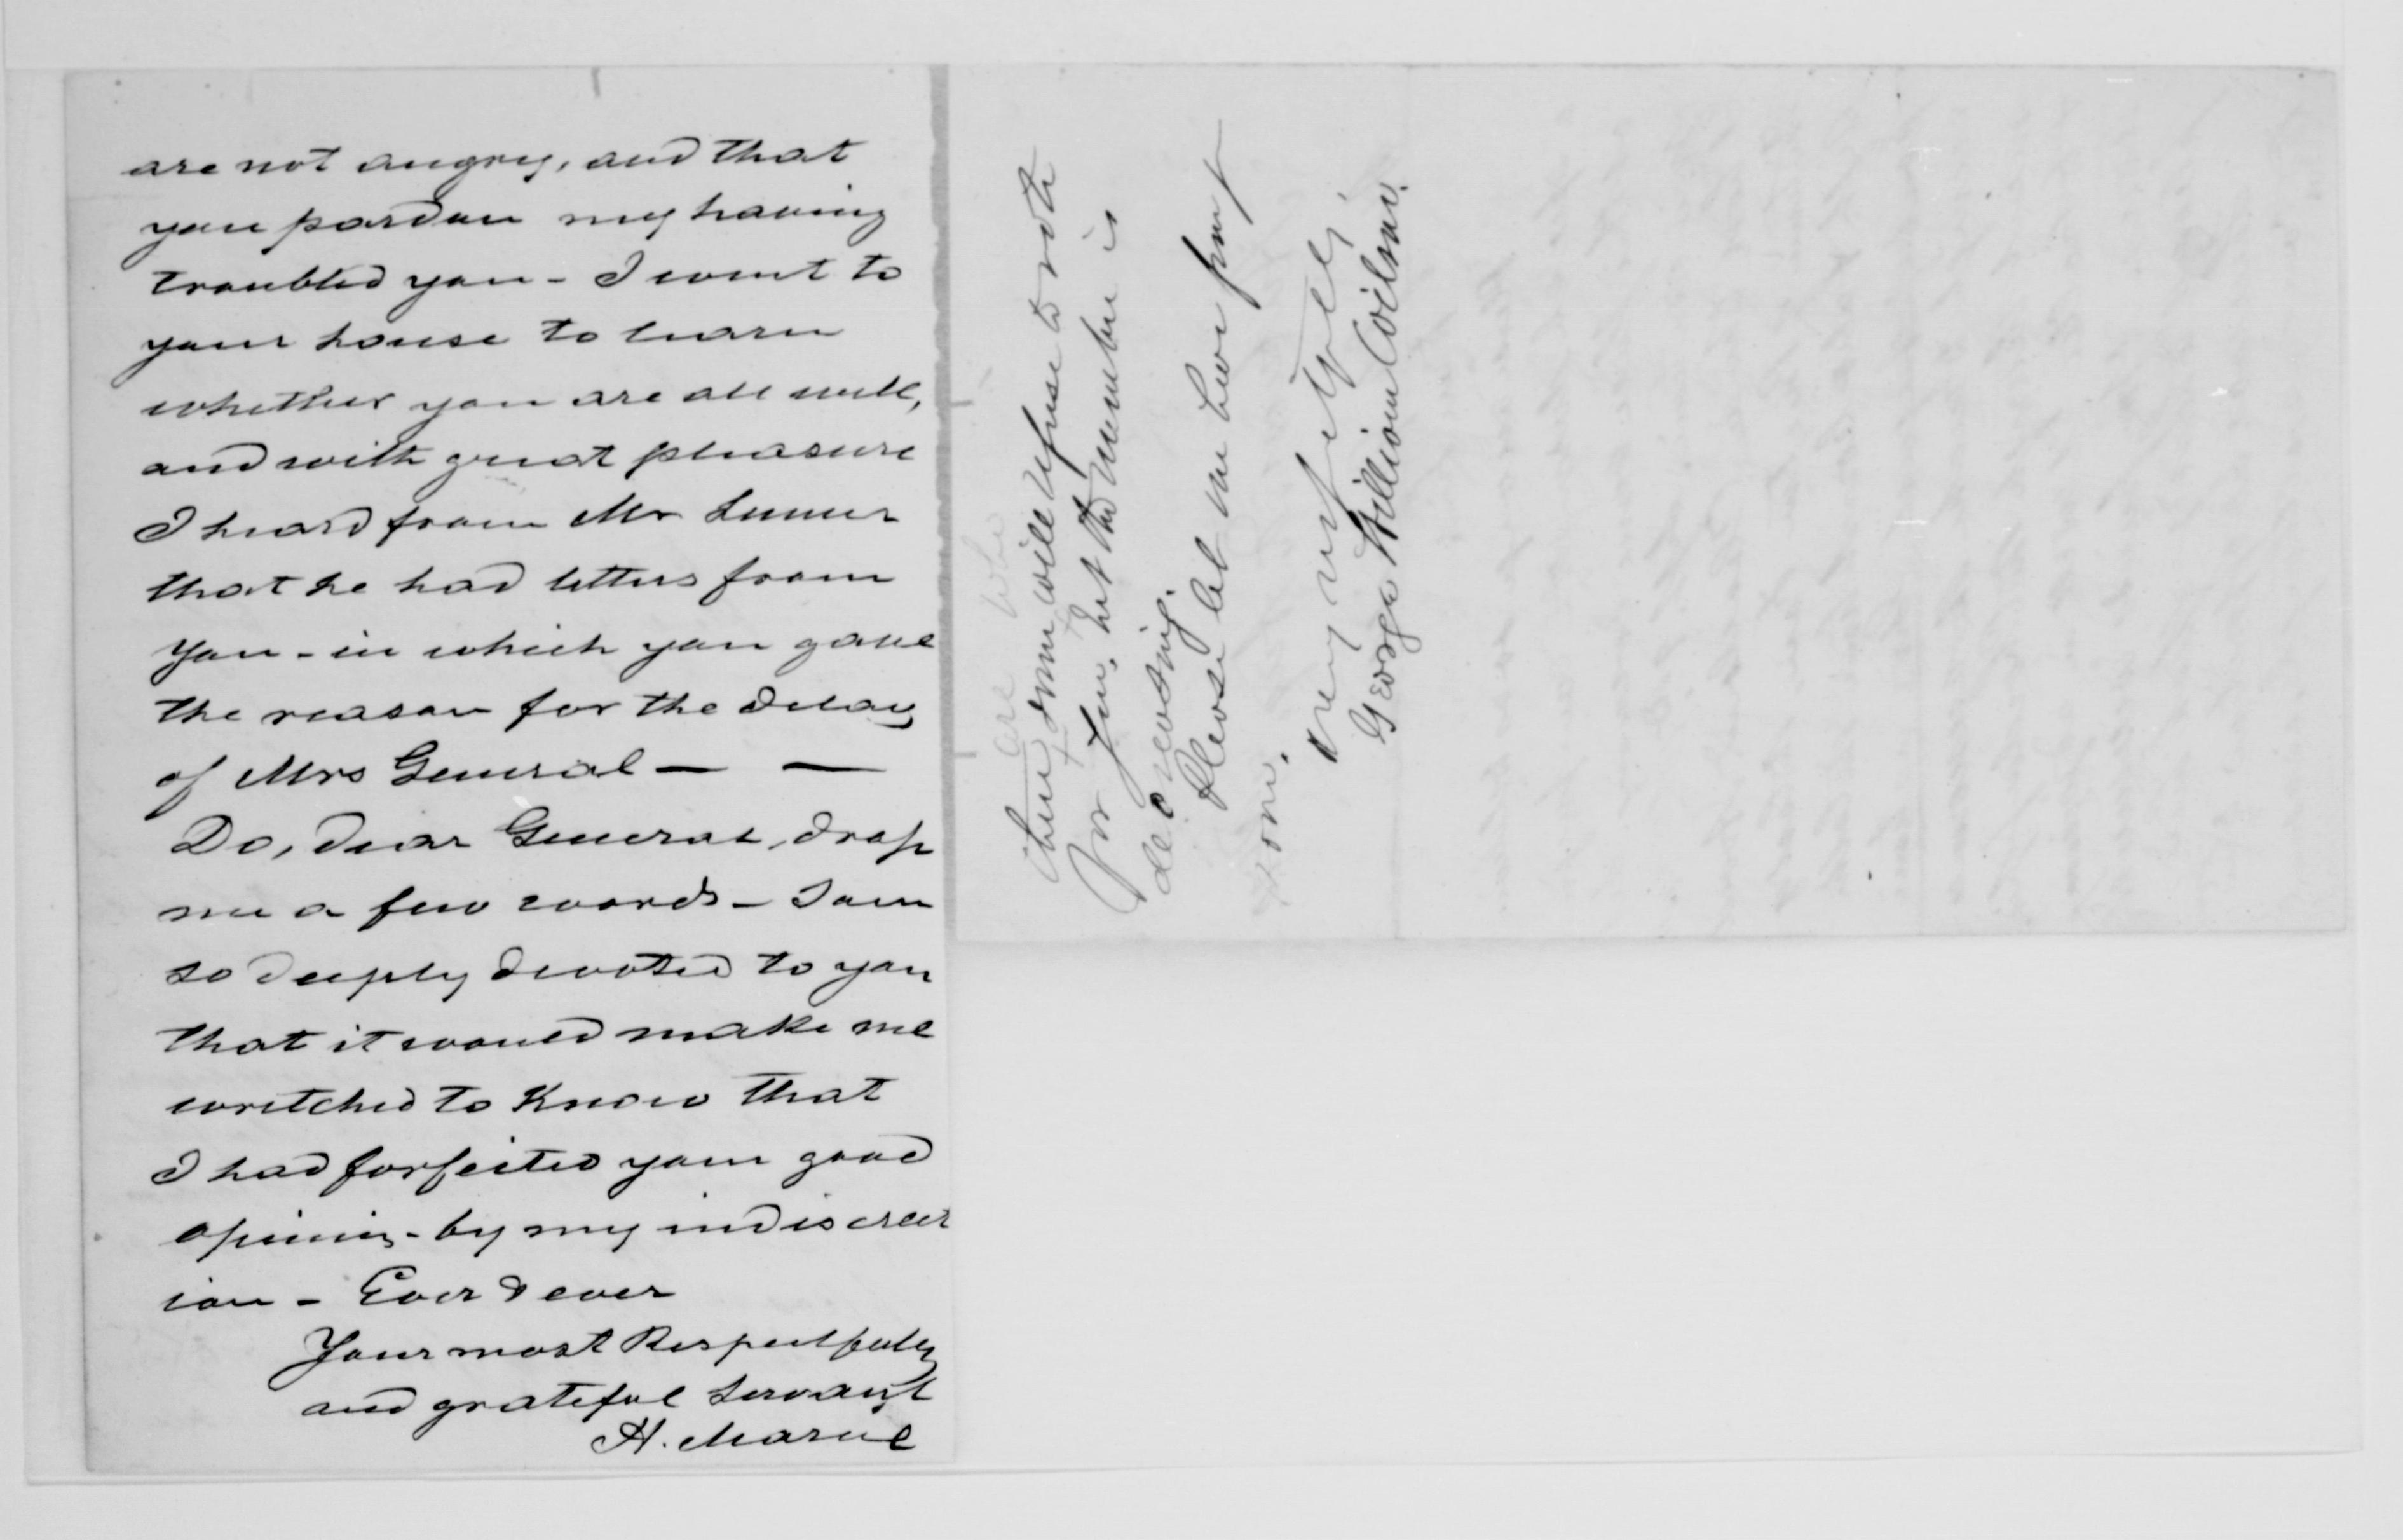 are not angry, and that
you pardon my having
troubled you - I went to
your house to learn
whether you are all well,
and with great pleasure
I heard from Mr Sumner
that he had letters from
you - in which you gave
the reason for the delay
of Mrs General — —
Do, dear General, drop
me a few words - I am
so deeply devoted to you
that it would make me
wretched to know that
I had forfeited your good
opinion - by my indiscret
ion - Ever & ever
Your most Respectfully
and grateful Servant
A.
are who
will refuse to vote
for you, but the number is
decreasing.
Please let me hear from you
soon.
Very respectfully,
George William Wilson.